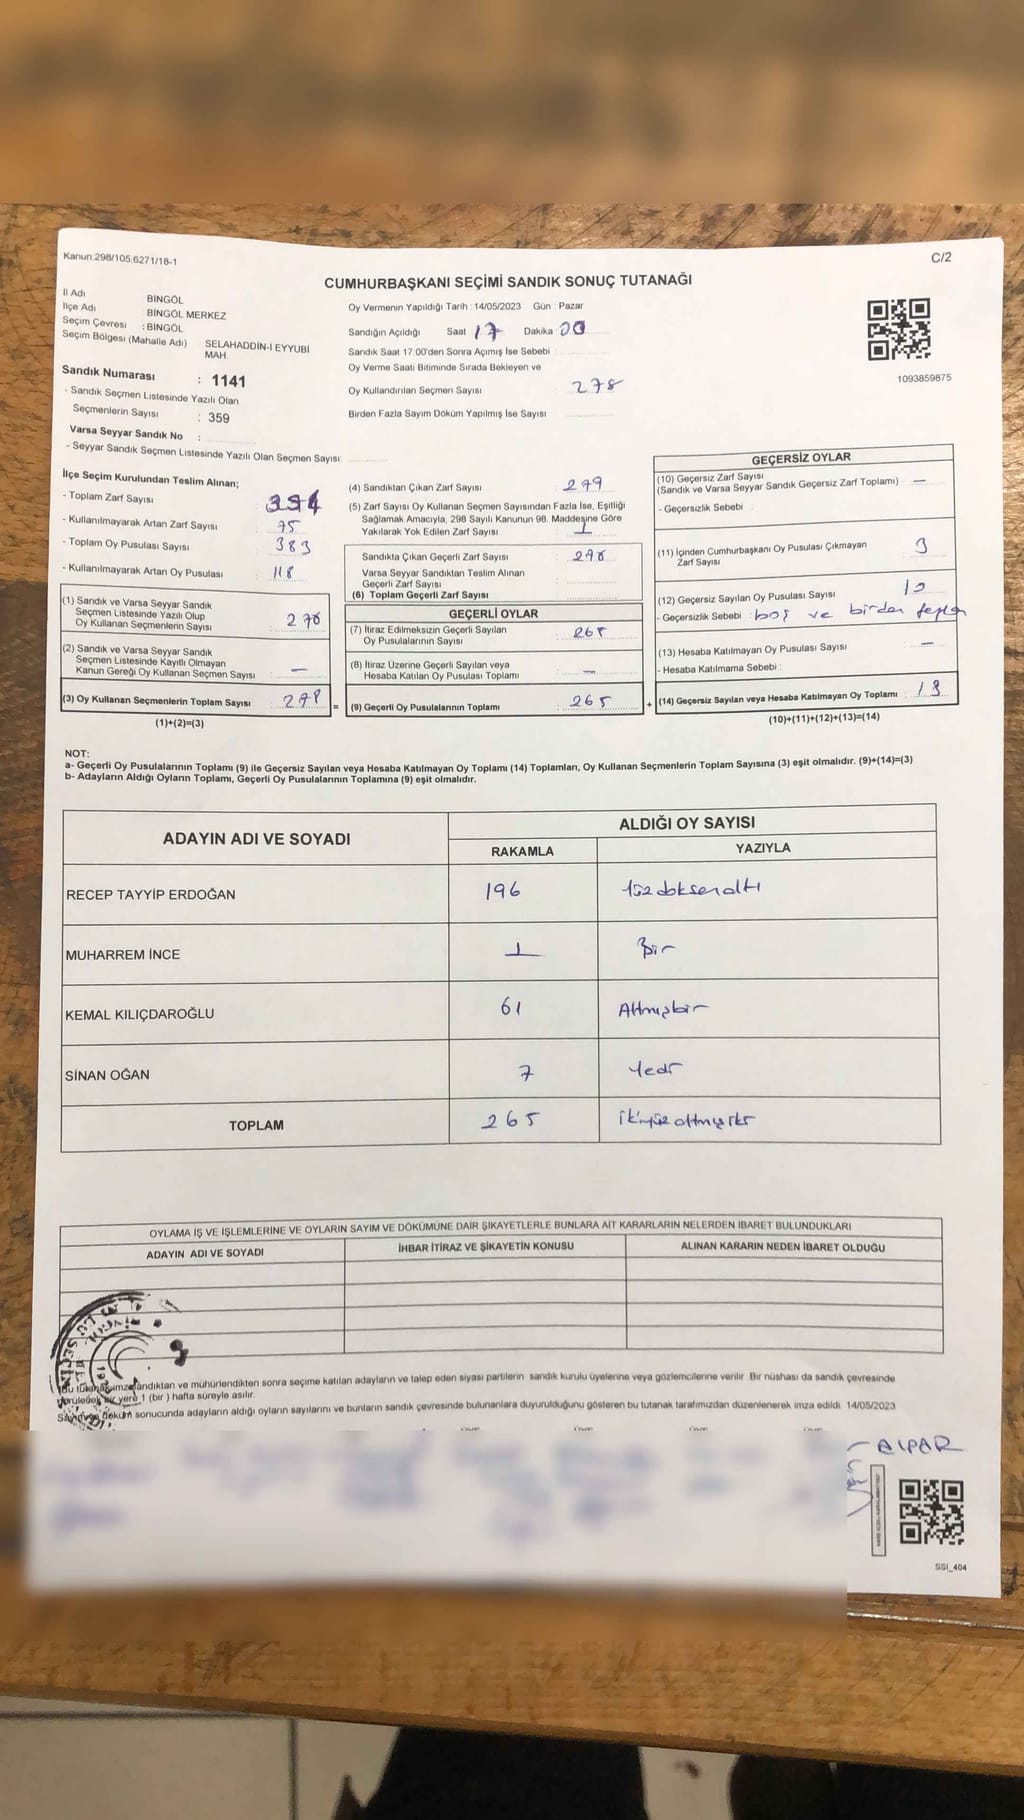 Kanun:298/105.6271/18-1
C/2
CUMHURBAŞKANI SEÇİMİ SANDIK SONUÇ TUTANAĞI
İl Adı BİNGÖL
İlçe Adı BİNGÖL MERKEZ
Seçim Çevresi : BİNGÖL
Seçim Bölgesi (Mahalle Adı) SELAHADDİN-İ EYYUBİ MAH.
Sandık Numarası : 1141
- Sandık Seçmen Listesinde Yazılı Olan
Seçmenlerin Sayısı : 359
Varsa Seyyar Sandık No :
- Seyyar Sandık Seçmen Listesinde Yazılı Olan Seçmen Sayısı:
Oy Vermenin Yapıldığı Tarih :14/05/2023 Gün : Pazar
Sandığın Açıldığı Saat 17 Dakika : 00
Sandık Saat 17:00'den Sonra Açımış İse Sebebi :
Oy Verme Saati Bitiminde Sırada Bekleyen ve
Oy Kullandırılan Seçmen Sayısı : 278
Birden Fazla Sayım Döküm Yapılmış İse Sayısı :
1093859875
İlçe Seçim Kurulundan Teslim Alınan;
- Toplam Zarf Sayısı :
- Kullanılmayarak Artan Zarf Sayısı : 75
- Toplam Oy Pusulası Sayısı : 383
- Kullanılmayarak Artan Oy Pusulası : 118
(1) Sandık ve Varsa Seyyar Sandık
Seçmen Listesinde Yazılı Olup
Oy Kullanan Seçmenlerin Sayısı : 278
(2) Sandık ve Varsa Seyyar Sandık
Seçmen Listesinde Kayıtlı Olmayan
Kanun Gereği Oy Kullanan Seçmen Sayısı : —
(3) Oy Kullanan Seçmenlerin Toplam Sayısı : 278
(1)+(2)=(3)
(4) Sandıktan Çıkan Zarf Sayısı : 279
(5) Zarf Sayısı Oy Kullanan Seçmen Sayısından Fazla İse, Eşitliği
Sağlamak Amacıyla, 298 Sayılı Kanunun 98. Maddesine Göre
Yakılarak Yok Edilen Zarf Sayısı : 1
Sandıkta Çıkan Geçerli Zarf Sayısı : 278
Varsa Seyyar Sandıktan Teslim Alınan
Geçerli Zarf Sayısı :
(6) Toplam Geçerli Zarf Sayısı :
GEÇERLİ OYLAR
(7) İtiraz Edilmeksizin Geçerli Sayılan
Oy Pusulalarının Sayısı : 265
(8) İtiraz Üzerine Geçerli Sayılan veya
Hesaba Katılan Oy Pusulası Toplamı : —
= (9) Geçerli Oy Pusulalarının Toplamı : 265 +
GEÇERSİZ OYLAR
(10) Geçersiz Zarf Sayısı
(Sandık ve Varsa Seyyar Sandık Geçersiz Zarf Toplamı) : —
- Geçersizlik Sebebi :
(11) İçinden Cumhurbaşkanı Oy Pusulası Çıkmayan
Zarf Sayısı : 3
(12) Geçersiz Sayılan Oy Pusulası Sayısı : 10
- Geçersizlik Sebebi : boş ve birden fazla
(13) Hesaba Katılmayan Oy Pusulası Sayısı : —
- Hesaba Katılmama Sebebi :
(14) Geçersiz Sayılan veya Hesaba Katılmayan Oy Toplamı : 13
(10)+(11)+(12)+(13)=(14)
NOT:
a- Geçerli Oy Pusulalarının Toplamı (9) ile Geçersiz Sayılan veya Hesaba Katılmayan Oy Toplamı (14) Toplamları, Oy Kullanan Seçmenlerin Toplam Sayısına (3) eşit olmalıdır. (9)+(14)=(3)
b- Adayların Aldığı Oyların Toplamı, Geçerli Oy Pusulalarının Toplamına (9) eşit olmalıdır.
ADAYIN ADI VE SOYADI ALDIĞI OY SAYISI
RAKAMLA YAZIYLA
RECEP TAYYİP ERDOĞAN 196 Yüzdoksenaltı
MUHARREM İNCE 1 Bir
KEMAL KILIÇDAROĞLU 61 Altmışbir
SİNAN OĞAN 7 Yedi
TOPLAM 265
OYLAMA İŞ VE İŞLEMLERİNE VE OYLARIN SAYIM VE DÖKÜMÜNE DAİR ŞİKAYETLERLE BUNLARA AİT KARARLARIN NELERDEN İBARET BULUNDUKLARI
ADAYIN ADI VE SOYADI İHBAR İTİRAZ VE ŞİKAYETİN KONUSU ALINAN KARARIN NEDEN İBARET OLDUĞU
Bu tutanak imzalandıktan ve mühürlendikten sonra seçime katılan adayların ve talep eden siyasi partilerin sandık kurulu üyelerine veya gözlemcilerine verilir. Bir nüshası da sandık çevresinde
görülecek bir yere 1 (bir ) hafta süreyle asılır.
Sayım ve döküm sonucunda adayların aldığı oyların sayılarını ve bunların sandık çevresinde bulunanlara duyurulduğunu gösteren bu tutanak tarafımızdan düzenlenerek imza edildi. 14/05/2023
ALPAR
SSI_404